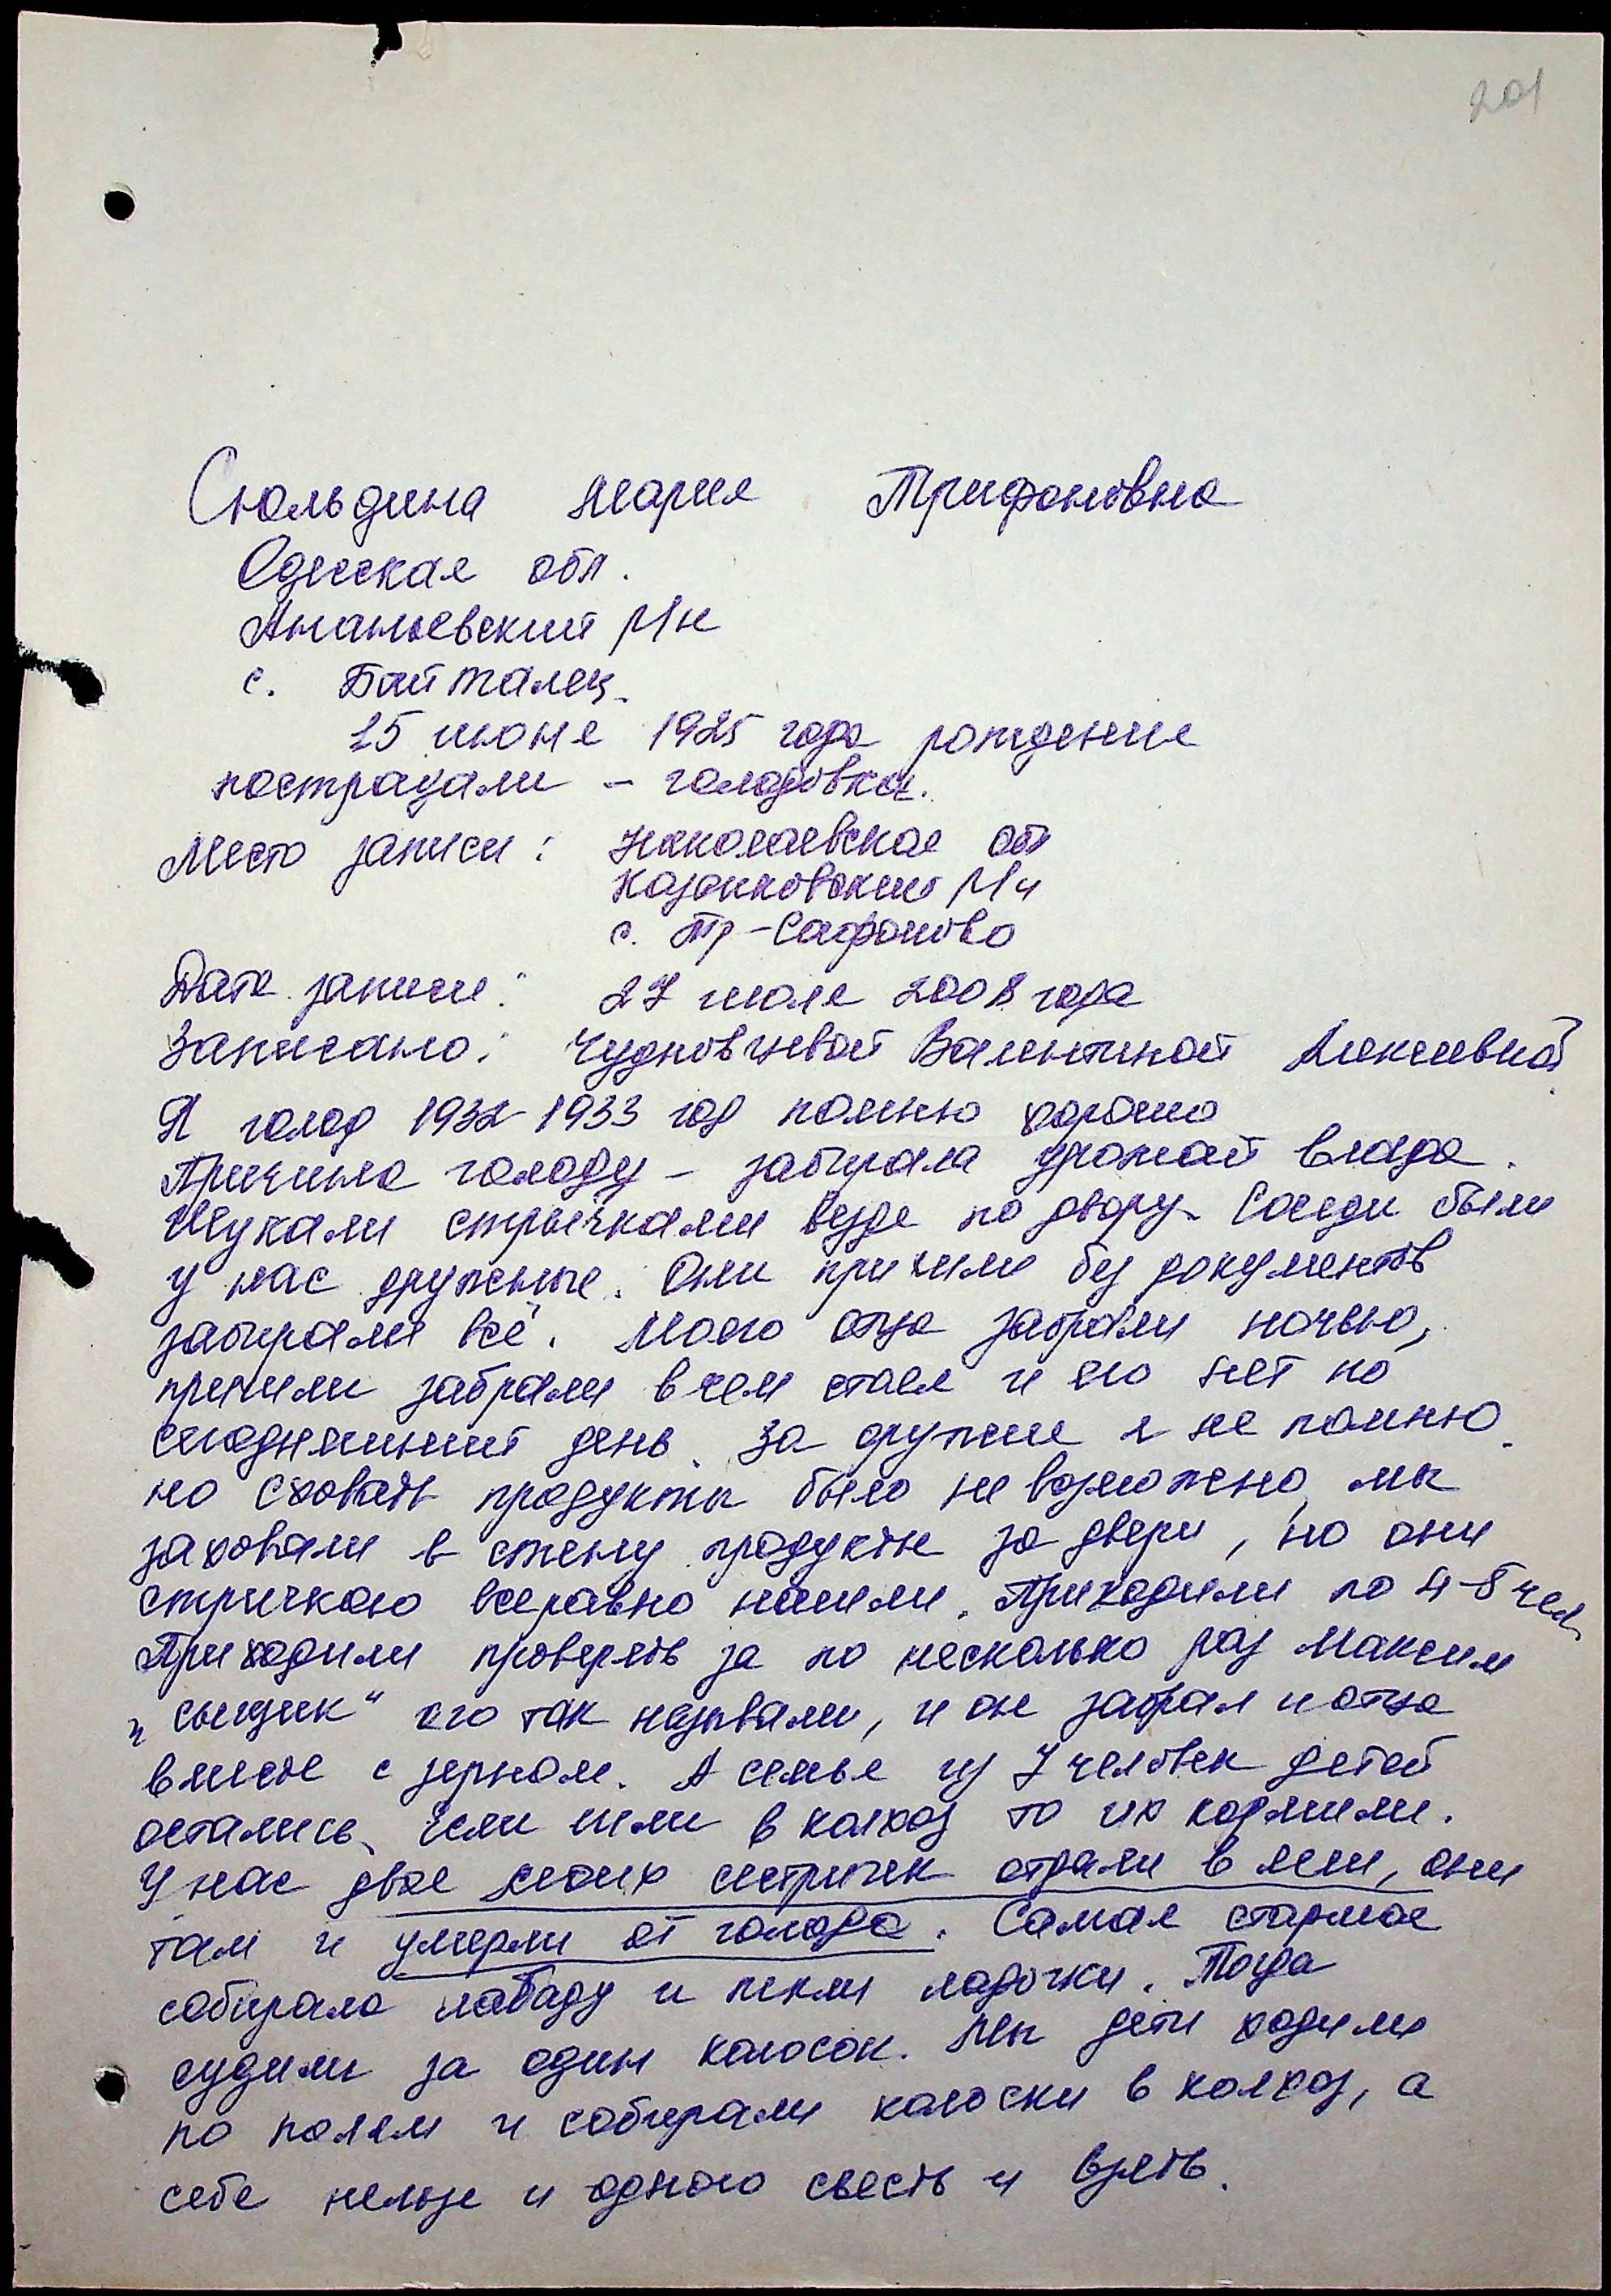 201
Сюльдина Мария Трифоновна
Одесская обл.
Ананьевский р/н
с. Байталец
15 июня 1925 года рождения
пострадали – голодовка.
Место записи: Николаевская обл
Казанковский р/н
с. Тр-Сафоново
Дата записи: 27 июля 2008 года
Записано: Валентиной Алексеевной
Я голод 1932-1933 год помню хорошо
Причина голоду – забирала урожай влада.
Шукали стрычками везде по двору. Соседи были
у нас дружные. Они пришли без документов
забирали всё. Моего отца забрали ночью,
пришли забрали в чем стоял и его нет по
сегодняшний день. За оружие я не помню.
но сховать продукты было не возможно, мы
заховали в стену продукты за двери, но они
стричкою всеравно нашли. Приходили по 4-5 чел.
Приходили проверять за по несколько раз Максим
„сыщик“ его так называли, и он забрал и отца
вместе с зерном. А семья из 7 человек детей
остались. Если шли в колхоз то их кормили.
У нас двое моих сестричек отдали в ясли, они
там и умерли от голода. Самая старшая
собирала лабаду и пекли ладочки. Тогда
судили за один колосок. Мы дети ходили
по полям и собирали колоски в колхоз, а
себе нельзя и одного съесть и взять.